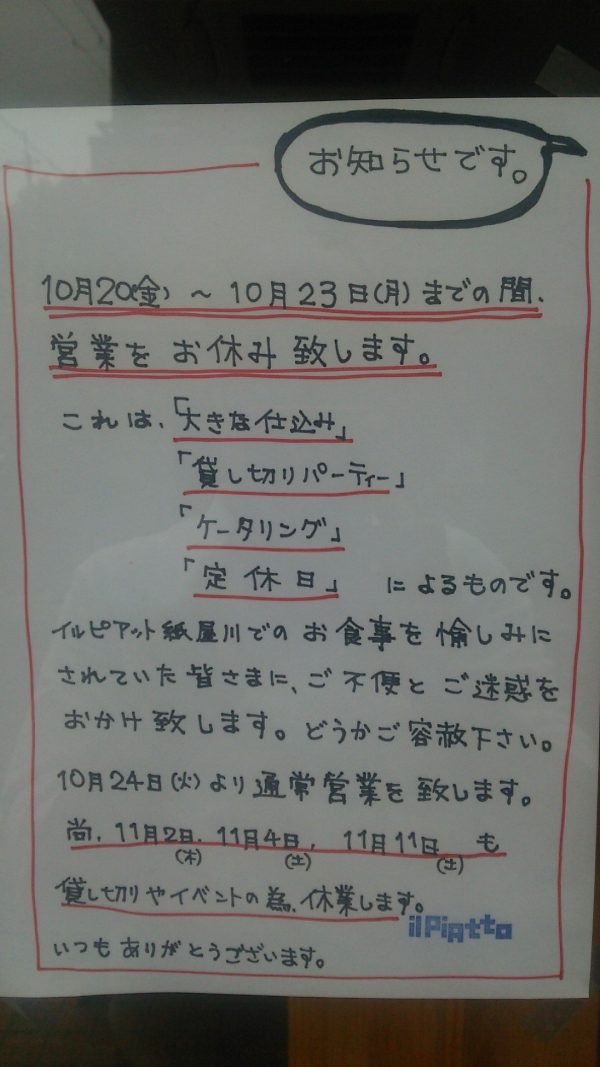 お知らせです。
10月20(金) ~ 10月23日(月)までの間、
営業をお休み致します。
これは、「大きな仕込み」
「貸し切りパーティー」
「ケータリング」
「定休日」 によるものです。
イルピアット紙屋川でのお食事を愉しみに
されていた皆さまに、ご不便とご迷惑を
おかけ致します。どうかご容赦下さい。
10月24日(火)より通常営業を致します。
尚、11月2日、11月4日、11月11日 も
(木) (土) (土)
貸し切りやイベントの為、休業します。
ilPiAtto
いつもありがとうございます。